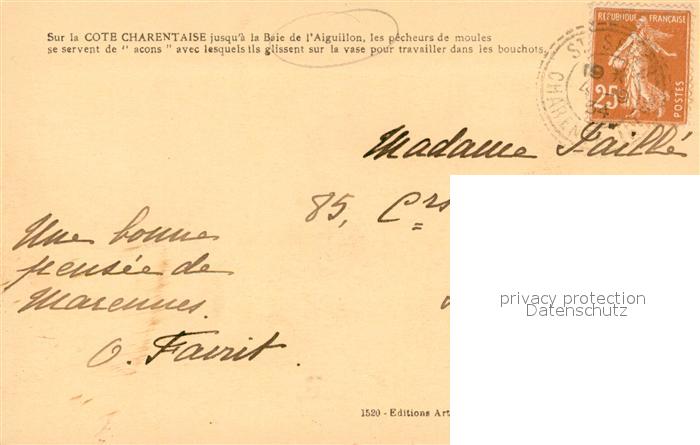 Sur la COTE CHARENTAISE jusqu'à la Baie de l'Aiguillon, les pêcheurs de moules
se servent de "acons" avec lesquels ils glissent sur la vase pour travailler dans les bouchots.
REPUBLIQUE FRANÇAISE
25
POSTES
Madame Faillé
85, Crs
Une bonne
pensée de
Marennes.
O. Favrit.
privacy protection
Datenschutz
1520 - Editions Art